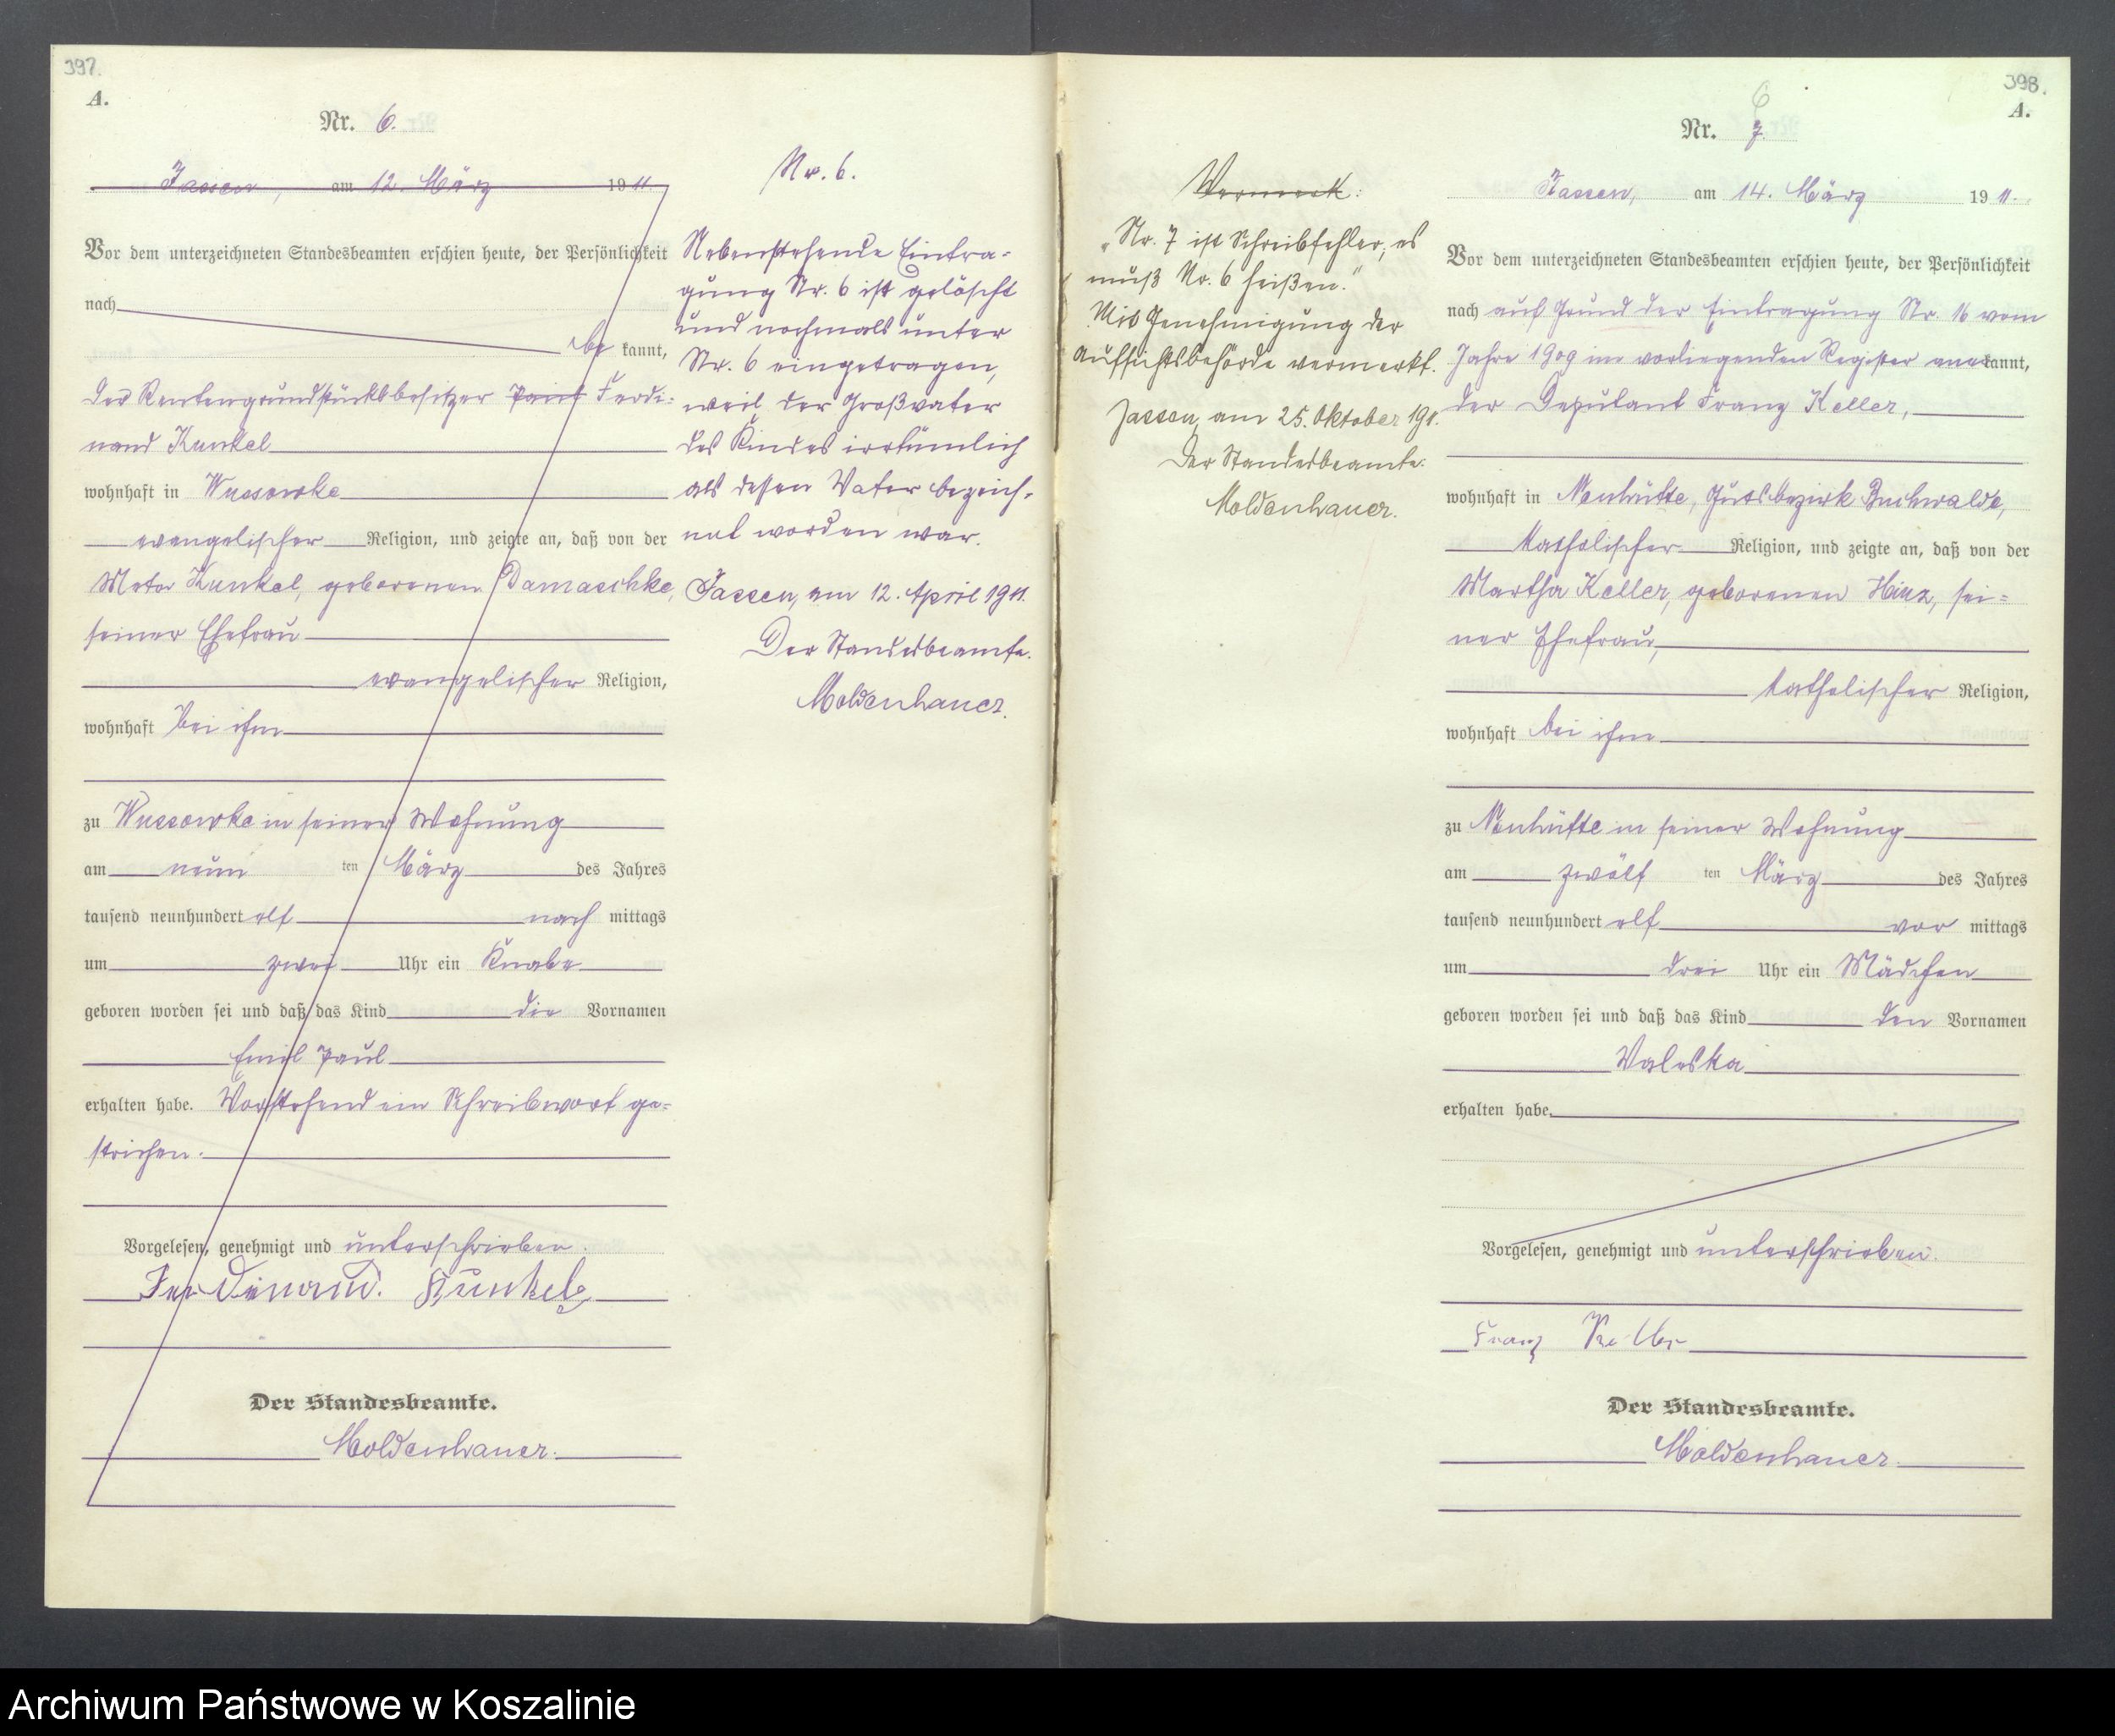 397.
A.
Nr. 6.
Jassen, am 12. März 1911.
Vor dem unterzeichneten Standesbeamten erschien heute, der Persönlichkeit
nach
be kannt,
der Rentengrundstücksbesitzer Paul Ferdi=
nand Kunkel
wohnhaft in Wussowke
evangelischer Religion, und zeigte an, daß von der
Meta Kunkel, geborenen Damaschke,
seiner Ehefrau
evangelischer Religion,
wohnhaft bei ihm
zu Wussowke in seiner Wohnung
am neun ten März des Jahres
tausend neunhundert elf nach mittags
um zwei Uhr ein Knabe
geboren worden sei und daß das Kind die Vornamen
Emil Paul
erhalten habe. Vorstehend ein Schreibwort ge=
strichen.
Vorgelesen, genehmigt und unterschrieben.
Ferdinand. Kunkel
Der Standesbeamte.
Moldenhauer.
Nr. 6.
Nebenstehende Eintra=
gung Nr. 6 ist gelöscht
und nochmals unter
Nr. 6 eingetragen,
weil der Großvater
des Kindes irrtümlich
als dessen Vater bezeich=
net worden war.
Jassen, am 12. April 1911.
Der Standesbeamte.
Moldenhauer.
Vermerk:
„Nr. 7 ist Schreibfehler, es
muß Nr. 6 heißen."
Mit Genehmigung der
Aufsichtsbehörde vermerkt.
Jassen, am 25. Oktober 191.
Der Standesbeamte:
Moldenhauer.
398.
A.
6
Nr. 7.
Jassen, am 14. März 1911.
Vor dem unterzeichneten Standesbeamten erschien heute, der Persönlichkeit
nach auf Grund der Eintragung Nr. 16 vom
Jahre 1909 im vorliegenden Register anerkannt,
der Deputant Franz Keller,
wohnhaft in Neuhütte, Gutsbezirk Buchwalde,
katholischer Religion, und zeigte an, daß von der
Martha Keller, geborenen Hinz, sei=
ner Ehefrau,
katholischer Religion,
wohnhaft bei ihm
zu Neuhütte in seiner Wohnung
am zwölf ten März des Jahres
tausend neunhundert elf vor mittags
um drei Uhr ein Mädchen
geboren worden sei und daß das Kind den Vornamen
Waleska
erhalten habe.
Vorgelesen, genehmigt und unterschrieben.
Franz Keller
Der Standesbeamte.
Moldenhauer.
Archiwum Państwowe w Koszalinie